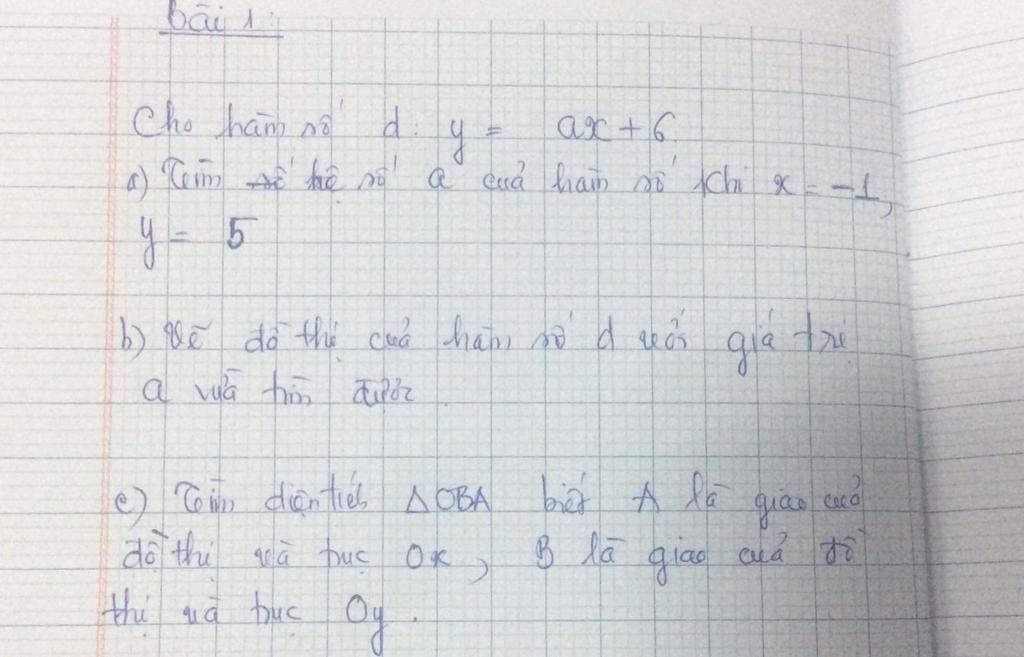 Bài 1:
Cho hàm số d: y = ax + 6.
a) Tìm số hệ số a của hàm số khi x = -1,
y = 5
b) Vẽ đồ thị của hàm số d với giá trị
a vừa tìm được.
c) Tìm diện tích △OBA biết A là giao của
đồ thị và trục Ox, B là giao của đồ
thị và trục Oy.